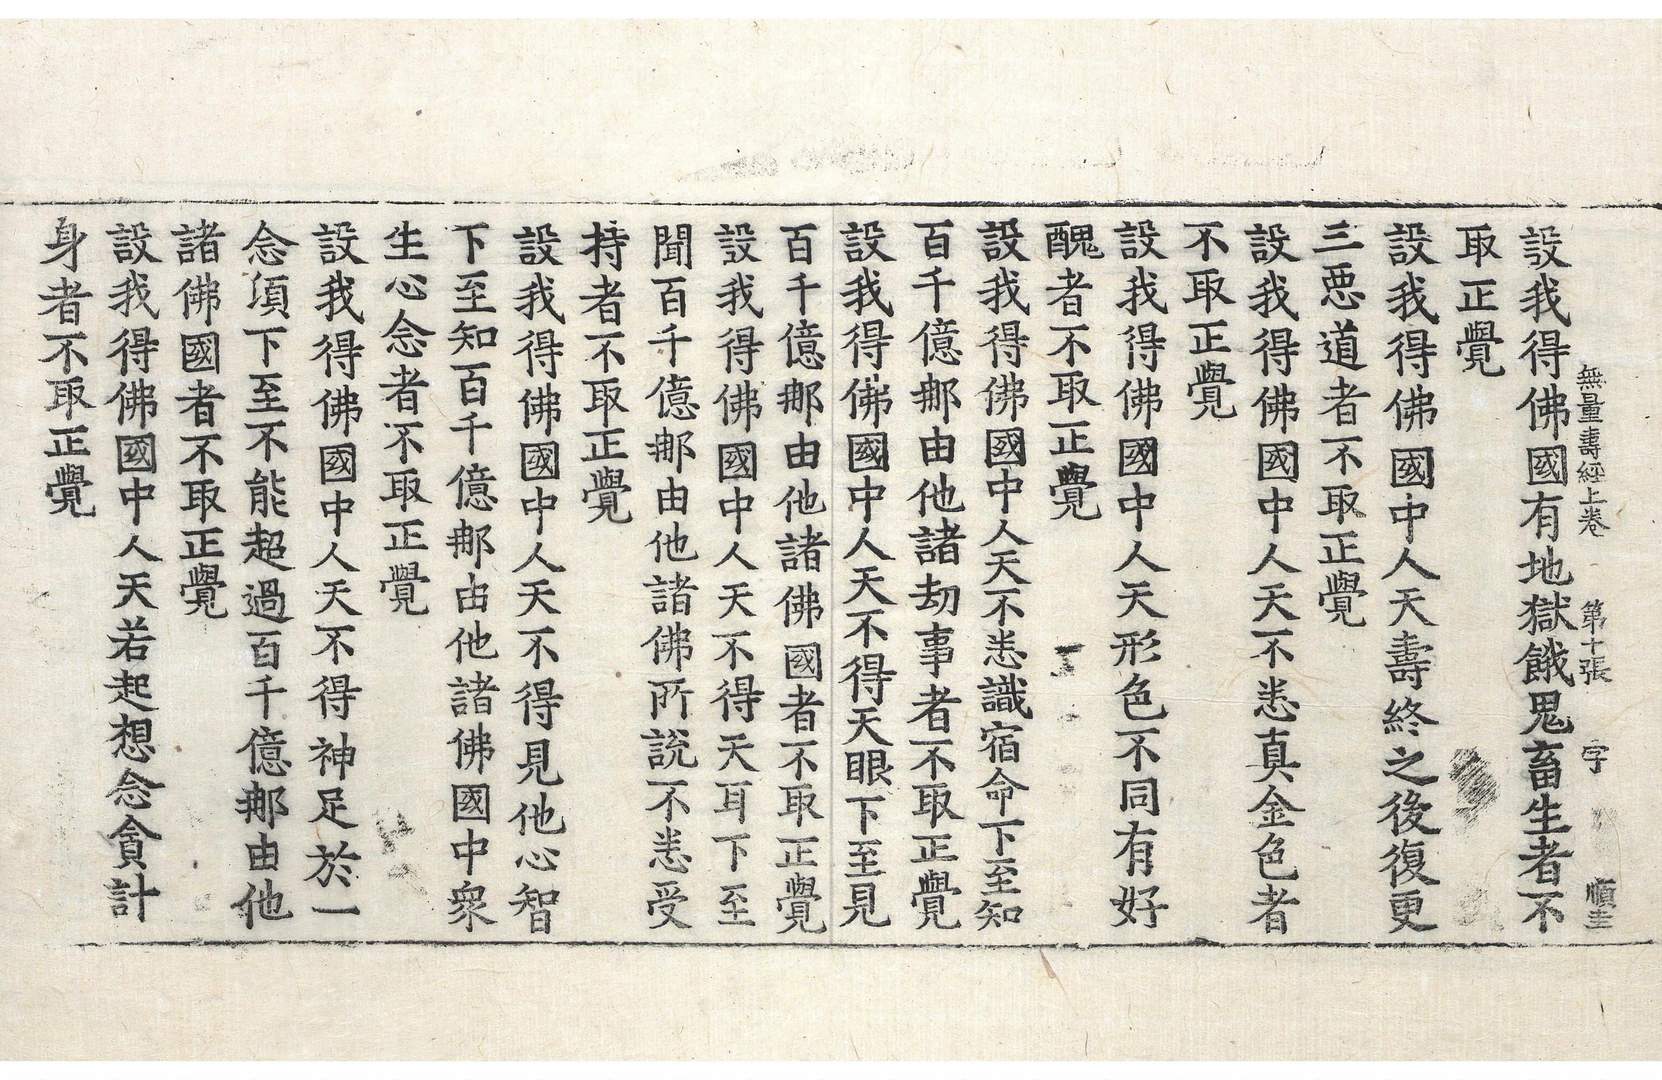 無量壽經上卷 第十張 字 順圭
設我得佛國有地獄餓鬼畜生者不
取正覺
設我得佛國中人天壽終之後復更
三惡道者不取正覺
設我得佛國中人天不悉真金色者
不取正覺
設我得佛國中人天形色不同有好
醜者不取正覺
設我得佛國中人天不悉識宿命下至知
百千億那由他諸劫事者不取正覺
設我得佛國中人天不得天眼下至見
百千億那由他諸佛國者不取正覺
設我得佛國中人天不得天耳下至
聞百千億那由他諸佛所說不悉受
持者不取正覺
設我得佛國中人天不得見他心智
下至知百千億那由他諸佛國中衆
生心念者不取正覺
設我得佛國中人天不得神足於一
念頃下至不能超過百千億那由他
諸佛國者不取正覺
設我得佛國中人天若起想念貪計
身者不取正覺